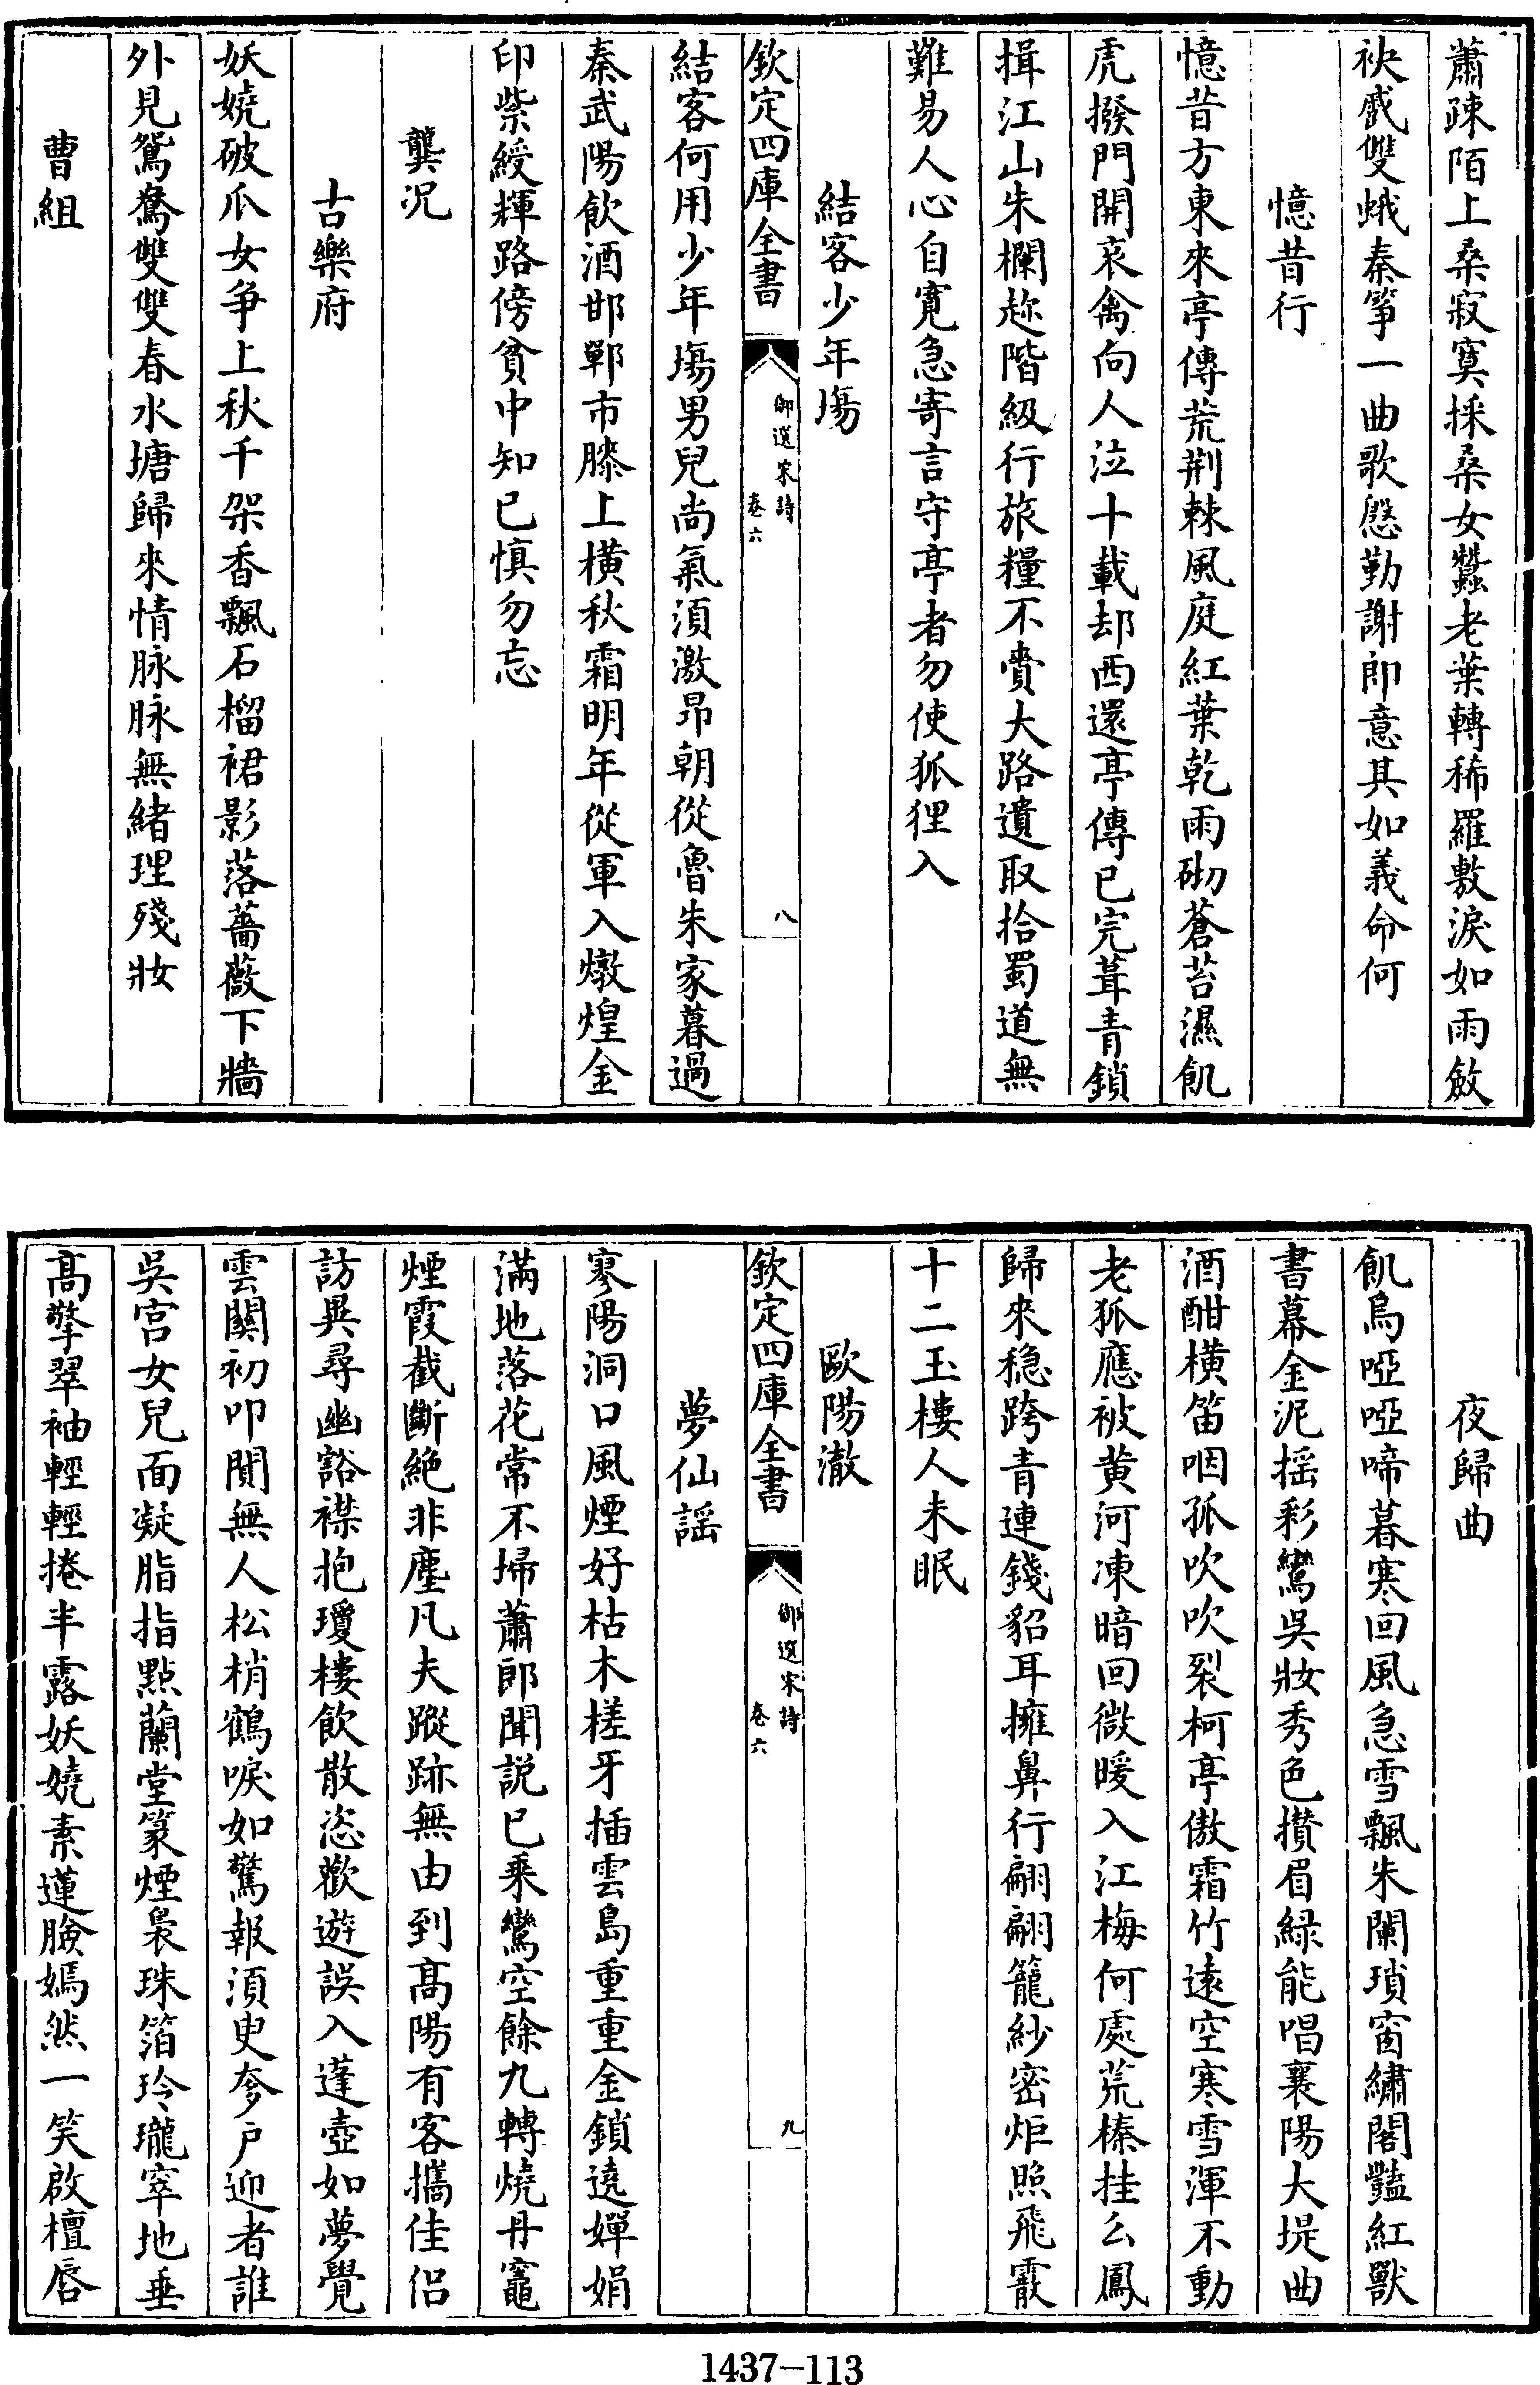 蕭疎陌上桑寂寞採桑女蠶老葉轉稀羅敷淚如雨斂
袂慼雙蛾秦箏一曲歌慇勤謝即意其如義命何
憶昔行
憶昔方東來亭傳荒荆棘風庭紅葉乾雨砌蒼苔濕飢
虎撥門開哀禽向人泣十載却西還亭傳已完葺青鎖
揖江山朱欄趂階級行旅糧不賫大路遺取拾蜀道無
難易人心自寛急寄言守亭者勿使狐狸入
結客少年塲
欽定四庫全書
御選宋詩
卷六
八
結客何用少年塲男兒尚氣須激昂朝從魯朱家暮過
秦武陽飲酒邯鄲市膝上横秋霜明年從軍入燉煌金
印紫綬輝路傍貧中知己慎勿忘
龔況
古樂府
妖嬈破瓜女爭上秋千架香飄石榴裙影落薔薇下牆
外見鴛鴦雙雙春水塘歸來情脉脉無緒理殘妝
曹組
夜歸曲
飢烏啞啞啼暮寒回風急雪飄朱闌瑣窗繡閣豔紅獸
書幕金泥揺彩鸞吳妝秀色攢眉緑能唱襄陽大堤曲
酒酣横笛咽孤吹吹裂柯亭傲霜竹逺空寒雪渾不動
老狐應被黄河凍暗回微暖入江梅何處荒榛挂么鳳
歸來穏跨青連錢貂耳擁鼻行翩翩籠紗密炬照飛霰
十二玉樓人未眠
歐陽澈
欽定四庫全書
御選宋詩
卷六
九
夢仙謡
寥陽洞口風煙好枯木槎牙插雲島重重金鎖遶嬋娟
滿地落花常不掃蕭郎聞説已乗鸞空餘九轉燒丹竈
煙霞截斷絶非塵凡夫蹤跡無由到髙陽有客攜佳侣
訪異尋幽豁襟抱瓊樓飲散恣歡遊誤入蓬壺如夢覺
雲關初叩閴無人松梢鶴唳如驚報須臾奓户迎者誰
吳宫女兒面凝脂指點蘭堂篆煙裊珠箔玲瓏窣地垂
髙擎翠袖輕輕捲半露妖嬈素蓮臉嫣然一笑啟檀唇
1437-113